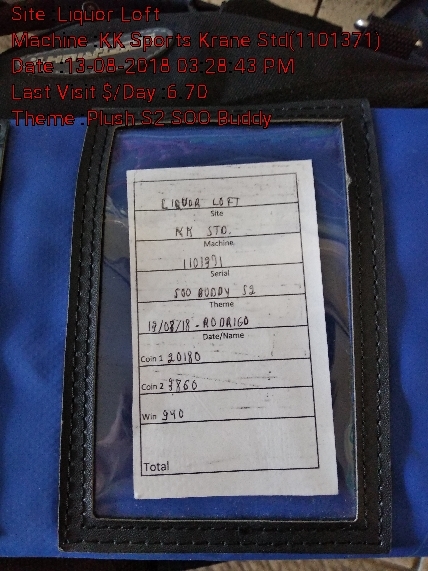 Site :Liquor Loft
Machine :KK Sports Krane Std(1101371)
Date :13-08-2018 03:28:43 PM
Last Visit $/Day :6.70
Theme :Plush S2 SOO Buddy
LIQUOR LOFT
Site
KK STD.
Machine
1101371
Serial
SOO BUDDY S2
Theme
13/08/18 - RODRIGO
Date/Name
Coin 1 20180
Coin 2 3860
Win 940
Total